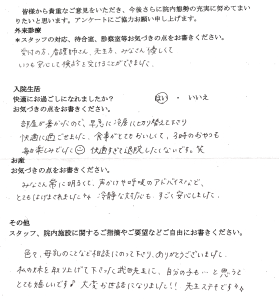 皆様から貴重なご意見をいただき、今後さらに院内態勢の充実に努めてまい
りたいと思います。アンケートにご協力お願い申し上げます。
外来診療
＊スタッフの対応、待合室、診察室等お気づきの点をお書きください。
受付の方、看護師さん、先生方、みなさん優しくて
いつも安心して検診を受けることができました。
入院生活
快適にお過ごしになれましたか？ はい ・ いいえ
お気づきの点をお書きください。
部屋が暑かったので、早急に冷房に切り替えて下さり
快適に過ごせました。食事がとてもおいしくて、3時のおやつも
毎日楽しみでした 快適すぎて退院したくないです。笑
お産
お気づきの点をお書きください。
みなさん常に明るくて、声かけや呼吸のアドバイスなど、
とてもはげまされました 冷静な対応も、すごく安心しました。
その他
スタッフ、院内施設に関するご指摘やご要望などご自由にお書きください。
色々、母乳のことなど相談にのって下さり、ありがとうございました。
私の妹も取り上げて下さった 先生に、自分の子も…と思うと
とても嬉しいです♪ 大変お世話になりました!! 先生ステキです